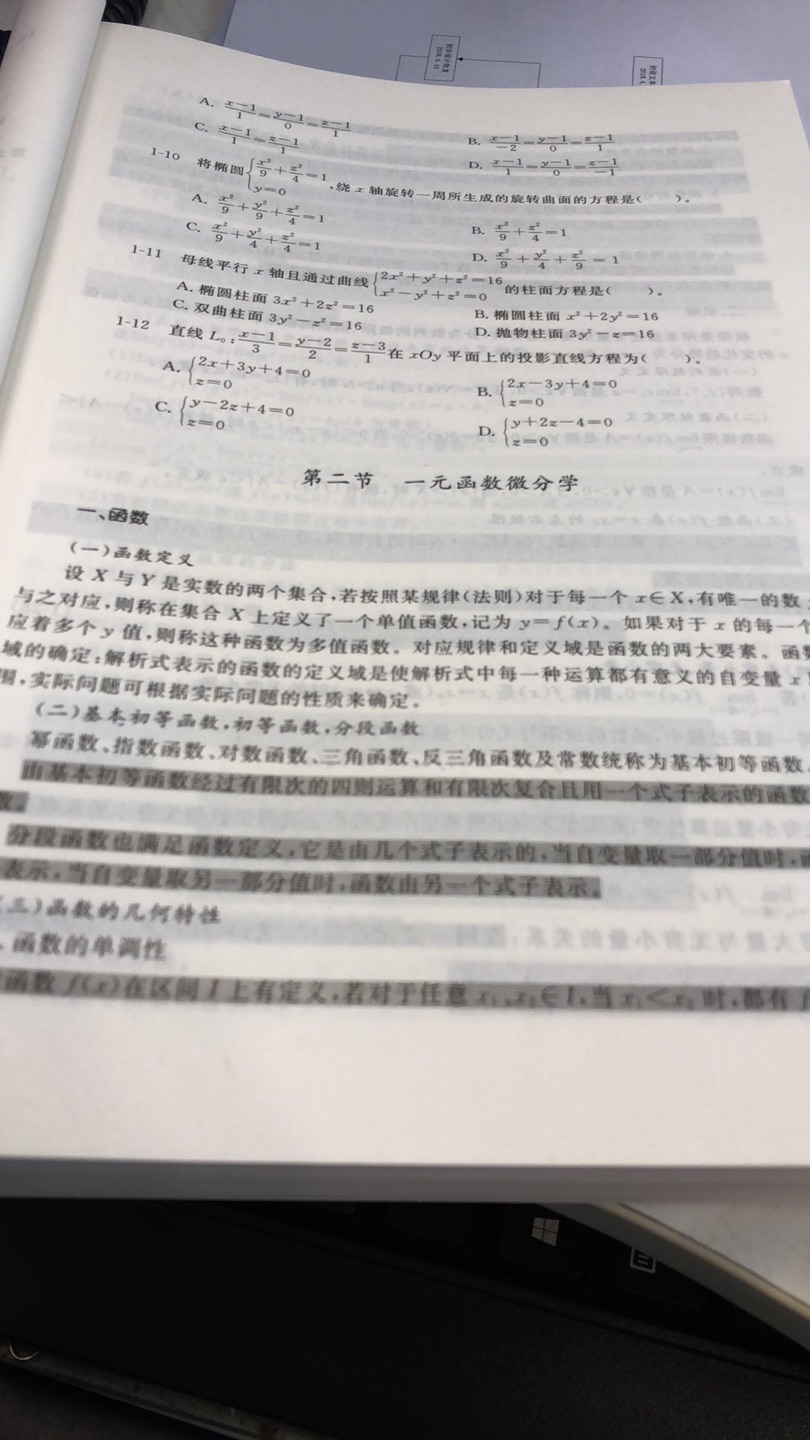 A. (x-1)/1=(y-1)/0=(z-1)/1
B. (x-1)/-2=(y-1)/0=(z-1)/1
C. (x-1)/1=(z-1)/1
D. (x-1)/1=(y-1)/0=(z-1)/-1
1-10 将椭圆{x²/9+z²/4=1, y=0 ,绕 x 轴旋转一周所生成的旋转曲面的方程是( )。
A. x²/9+y²/9+z²/4=1
B. x²/9+z²/4=1
C. x²/9+y²/4+z²/4=1
D. x²/9+y²/4+z²/9=1
1-11 母线平行 x 轴且通过曲线{2x²+y²+z²=16, x²-y²+z²=0 的柱面方程是( )。
A. 椭圆柱面 3x²+2z²=16
B. 椭圆柱面 x²+2y²=16
C. 双曲柱面 3y²-z²=16
D. 抛物柱面 3y²-z=16
1-12 直线 L₀:(x-1)/3=(y-2)/2=(z-3)/1 在 xOy 平面上的投影直线方程为( )。
A. {2x+3y+4=0, z=0
B. {2x-3y+4=0, z=0
C. {y-2z+4=0, z=0
D. {y+2z-4=0, z=0
第二节 一元函数微分学
一、函数
(一)函数定义
设 X 与 Y 是实数的两个集合,若按照某规律(法则)对于每一个 x∈X,有唯一的数
与之对应,则称在集合 X 上定义了一个单值函数,记为 y=f(x)。如果对于 x 的每一个
应着多个 y 值,则称这种函数为多值函数。对应规律和定义域是函数的两大要素。函数
域的确定:解析式表示的函数的定义域是使解析式中每一种运算都有意义的自变量 x
围,实际问题可根据实际问题的性质来确定。
(二)基本初等函数,初等函数,分段函数
幂函数、指数函数、对数函数、三角函数、反三角函数及常数统称为基本初等函数
由基本初等函数经过有限次的四则运算和有限次复合且用一个式子表示的函数
数。
分段函数也满足函数定义,它是由几个式子表示的,当自变量取一部分值时,函
表示,当自变量取另一部分值时,函数由另一个式子表示。
(三)函数的几何特性
函数的单调性
函数 f(x)在区间 I 上有定义,若对于任意 x₁、x₂∈I,当 x₁<x₂ 时,都有 f